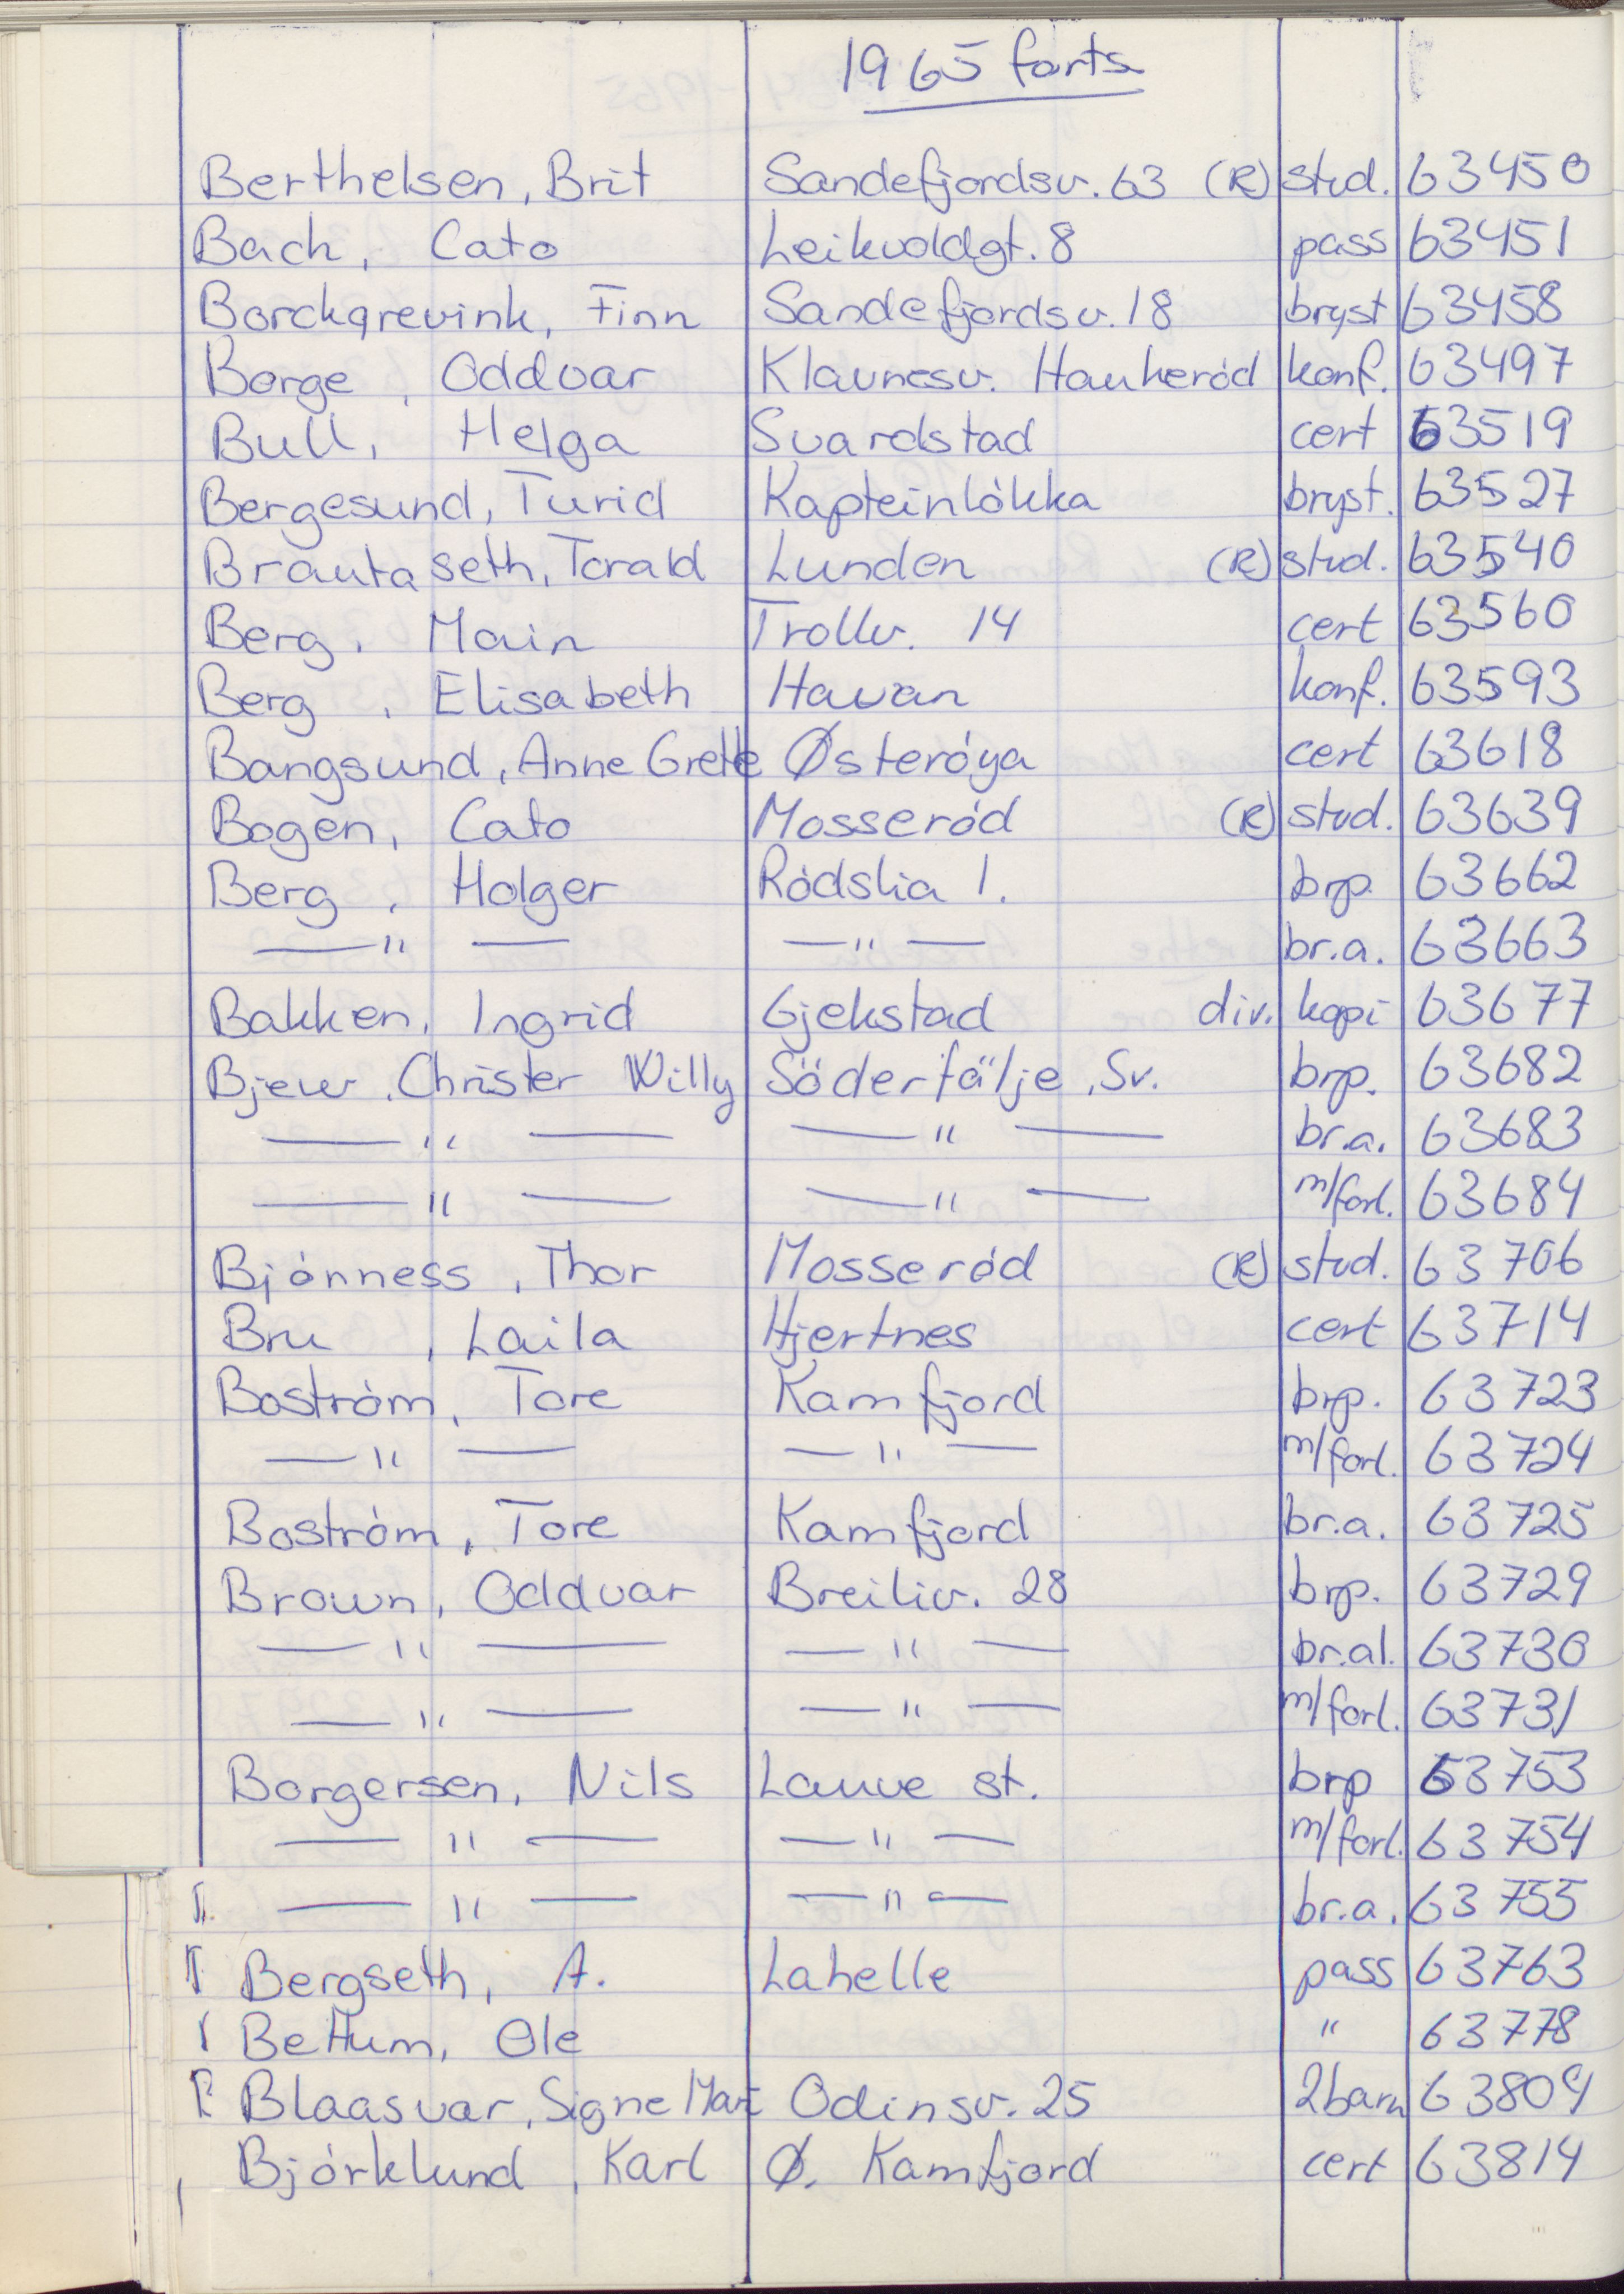 1965 forts
Berthelsen, Brit Sandefjordsv. 63 (R) stud. 63450
Bach, Cato Leikvoldgt. 8 pass 63451
Borckgrevink, Finn Sandefjordsv. 18 bryst 63458
Borge, Oddvar Klavnesv. Haukeród konf. 63497
Bull, Helga Svardstad cert 63519
Bergesund, Turid Kapteinlókka bryst. 63527
Brautaseth, Torald Lunden (R) stud. 63540
Berg, Main Trollv. 14 cert 63560
Berg, Elisabeth Havan konf. 63593
Bangsund, Anne Grethe Østeróya cert 63618
Bogen, Cato Mosseród (R) stud. 63639
Berg, Holger Ródslia 1. brp. 63662
— " — — " — br.a. 63663
Bakken, Ingrid Gjekstad div. kopi 63677
Bjew, Christer Willy Södertälje, Sv. brp. 63682
— " — — " — br.a. 63683
— " — — " — m/forl. 63684
Bjónness, Thor Mosseród (R) stud. 63706
Bru, Laila Hjertnes cert 63714
Boström, Tore Kamfjord brp. 63723
— " — — " — m/forl. 63724
Boström, Tore Kamfjord br.a. 63725
Brown, Oddvar Breiliv. 28 brp. 63729
— " — — " — br.al. 63730
— " — — " — m/forl. 63731
Borgersen, Nils Lauve st. brp 63753
— " — — " — m/forl. 63754
— " — — " — br.a. 63755
Bergseth, A. Lahelle pass 63763
Bettum, Ole " 63778
Blaasvar, Signe Mari Odinsv. 25 2barn 63809
Bjórklund, Karl Ø. Kamfjord cert 63814